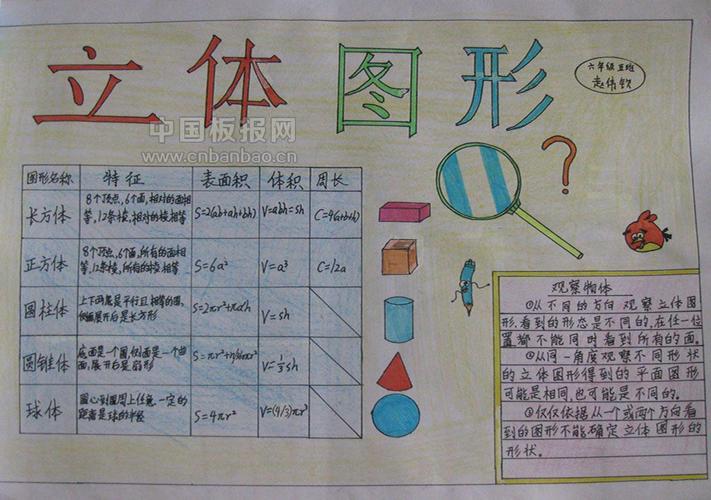 立体图形
六年级 五班
赵伟钦
中国板报网
www.cnbanbao.cn
图形名称 特征 表面积 体积 周长
长方体 8个顶点,6个面,相对的面相等,12条棱,相对的棱相等 S=2(ab+ah+bh) V=abh=sh C=4(a+b+h)
正方体 8个顶点,6个面,所有的面相等,12条棱,所有的棱相等 S=6a² V=a³ C=12a
圆柱体 上下两底是平行且相等的圆,侧面展开后是长方形 S=2πr²+πdh V=sh
圆锥体 底面是一个圆,侧面是一个曲面,展开后是扇形 V=⅓sh
球体 圆心到圆周上任意一定的距离是球的半径 S=4πr² V=(4/3)πr³
?
观察物体
①从不同的方向观察立体图
形,看到的形态是不同的,在任一位
置都不能同时看到所有的面。
②从同一角度观察不同形状
的立体图形得到的平面图形
可能是相同,也可能是不同的。
③仅仅依据从一个或两个方向看
到的图形不能确定立体图形的
形状。